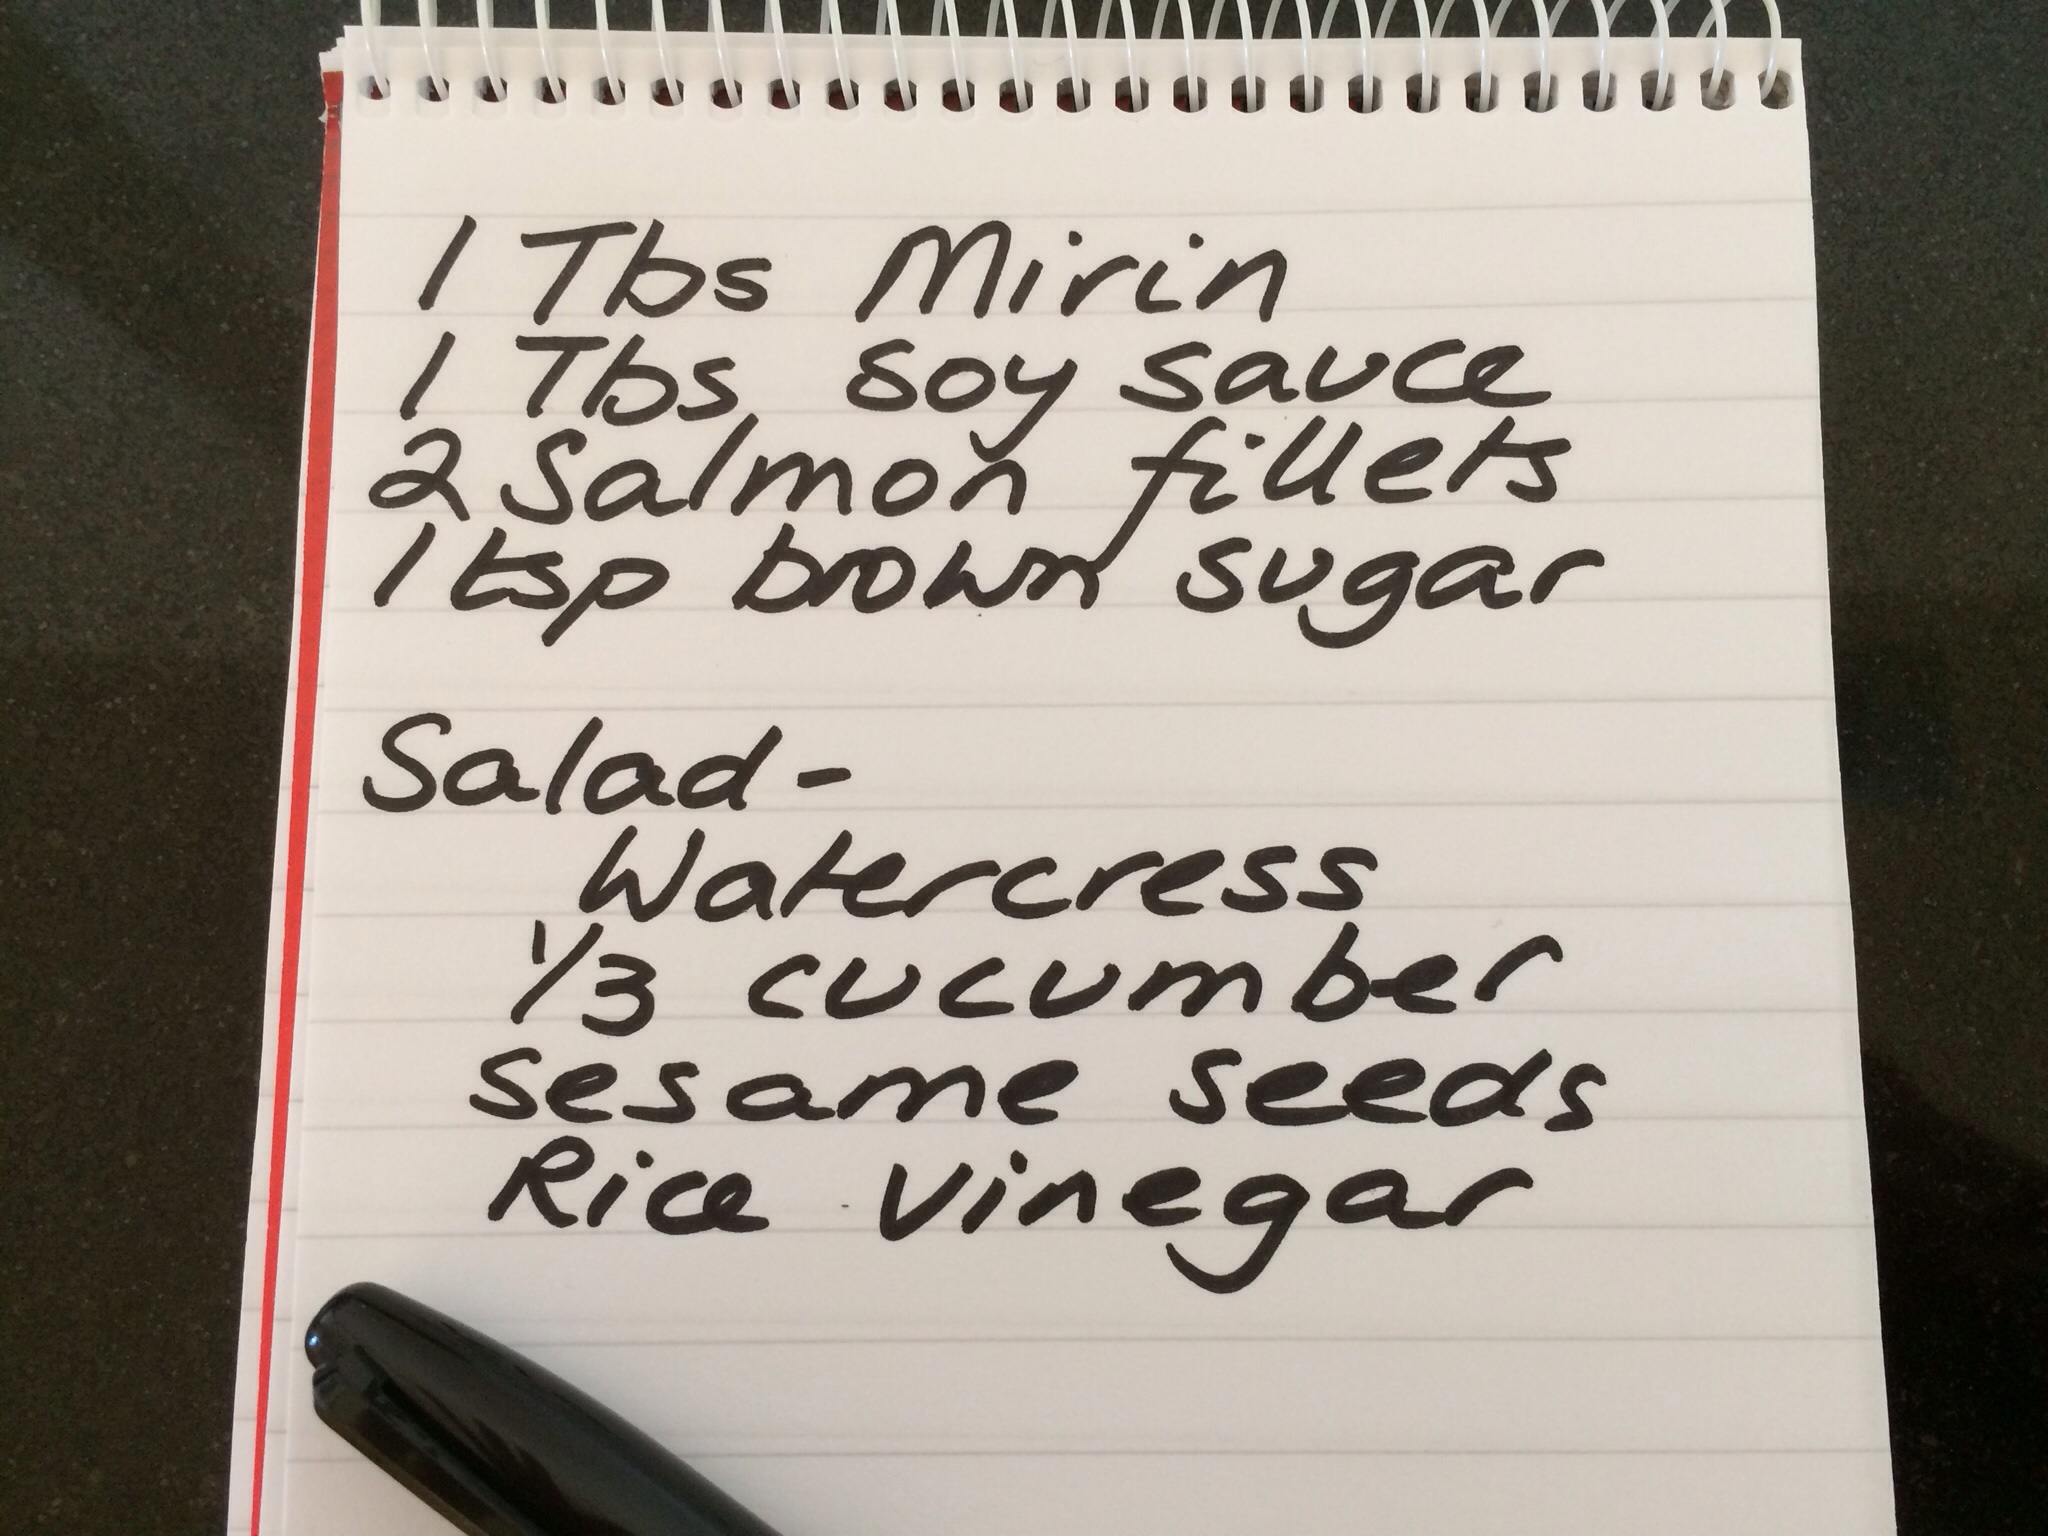 1 Tbs Mirin
1 Tbs soy sauce
2 Salmon fillets
1 tsp brown sugar
Salad -
Watercress
1/3 cucumber
sesame seeds
Rice vinegar